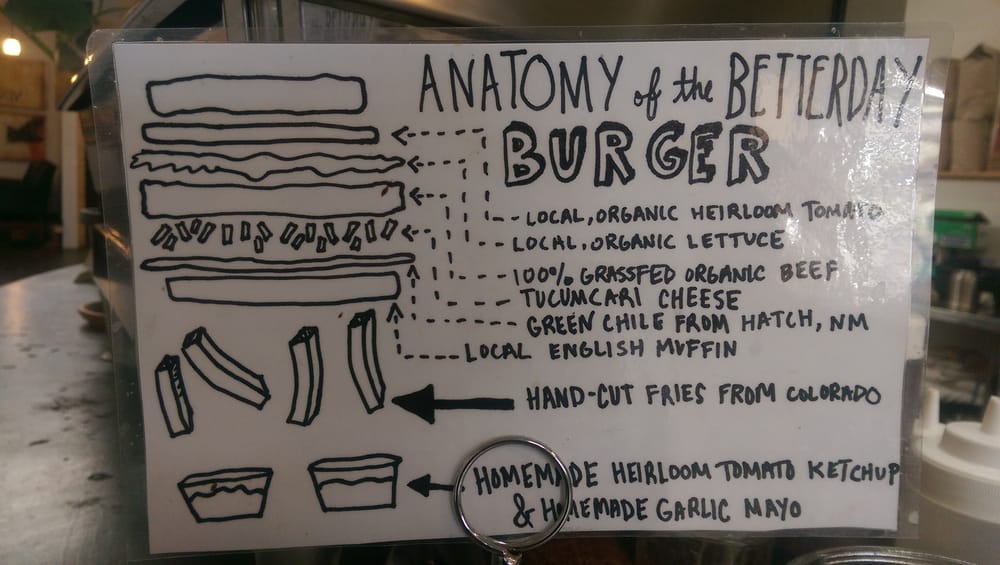 ANATOMY of the BETTERDAY
BURGER
LOCAL, ORGANIC HEIRLOOM TOMATO
LOCAL, ORGANIC LETTUCE
100% GRASSFED ORGANIC BEEF
TUCUMCARI CHEESE
GREEN CHILE FROM HATCH, NM
LOCAL ENGLISH MUFFIN
HAND-CUT FRIES FROM COLORADO
HOMEMADE HEIRLOOM TOMATO KETCHUP
& HOMEMADE GARLIC MAYO